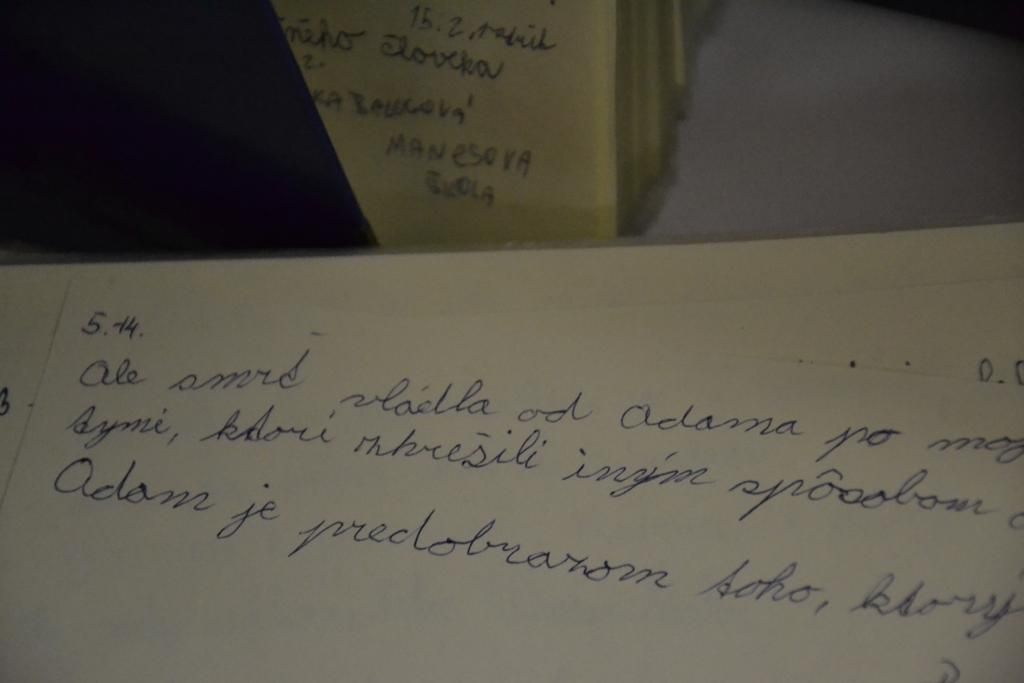 15.2.
človeka
MANESOVA
ŠKOLA
5.14.
Ale smrť vládla od Adama po
tými, ktorí zhrešili iným spôsobom
Adam je predobrazom toho, ktorý